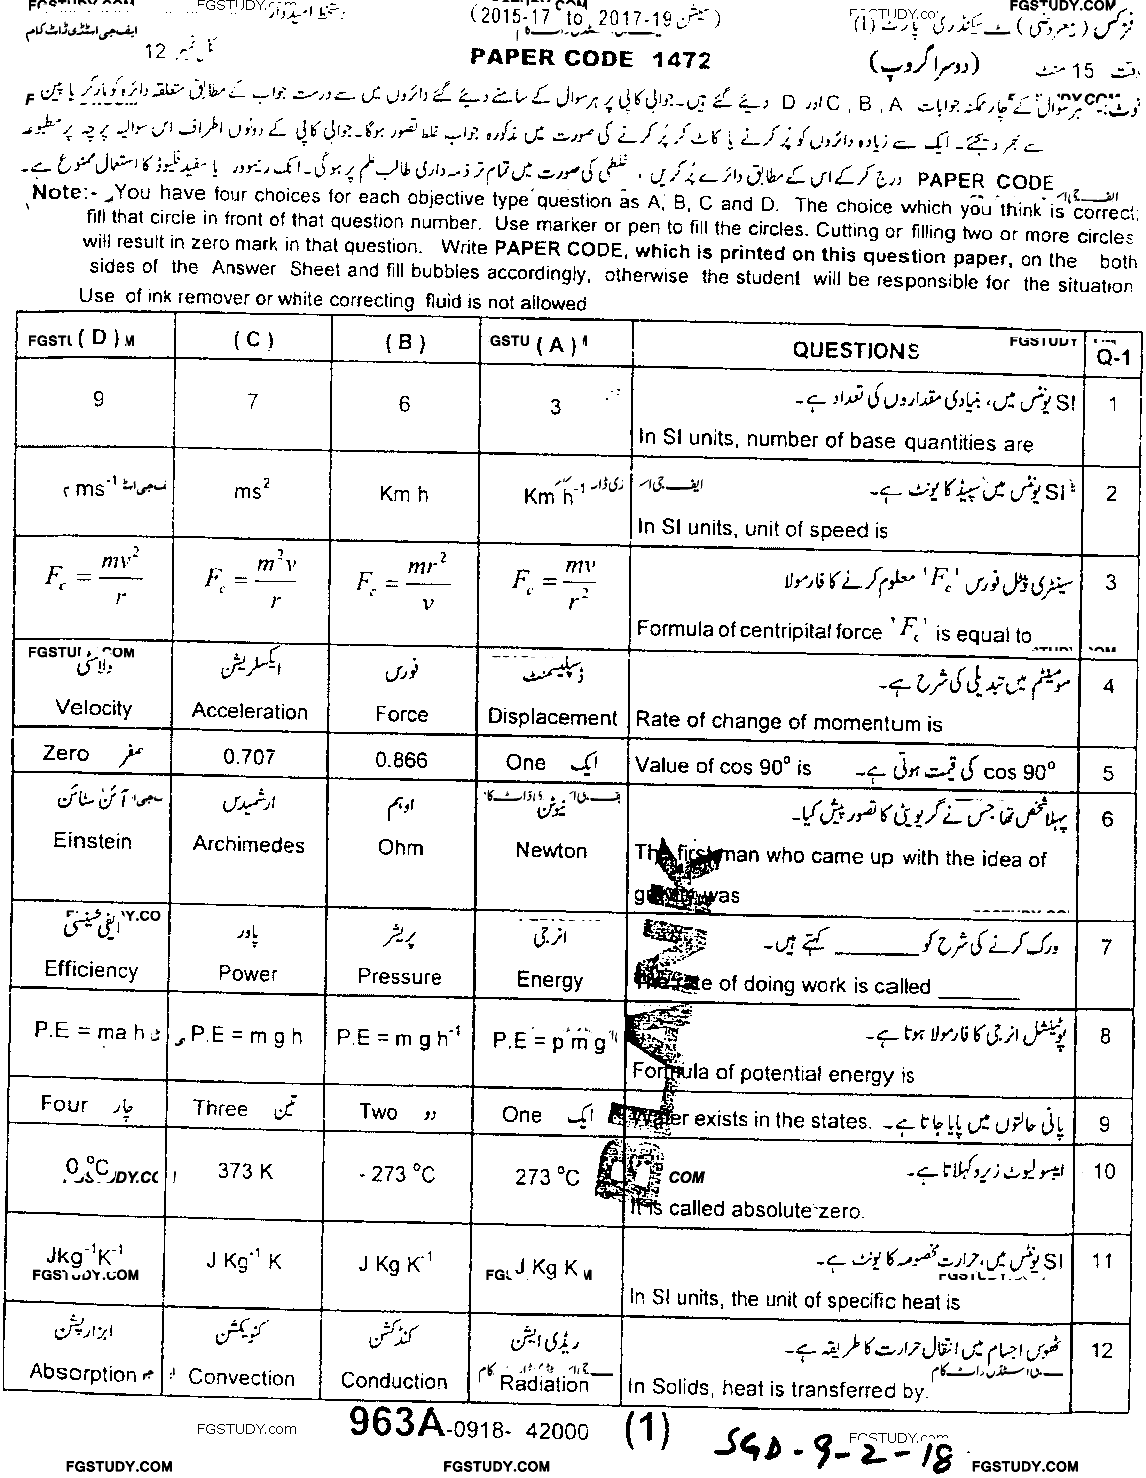 FGSTUDY.com FGSTUDY.COM
دستخط امیدوار (سیشن 2015-17 to 2017-19) فزکس (معروضی) سیکنڈری پارٹ (I)
ایف جی اسٹڈی ڈاٹ کام
کل نمبر 12 PAPER CODE 1472 (دوسرا گروپ) وقت 15 منٹ
نوٹ: ہر سوال کے چار ممکنہ جوابات A ، B ، C اور D دیئے گئے ہیں۔ جوابی کاپی پر ہر سوال کے سامنے دیئے گئے دائروں میں سے درست جواب کے مطابق متعلقہ دائرہ کو مارکر یا پین
سے بھر دیجئے۔ ایک سے زیادہ دائروں کو پُر کرنے یا کاٹ کر پُر کرنے کی صورت میں مذکورہ جواب غلط تصور ہوگا۔ جوابی کاپی کے دونوں اطراف اس سوالیہ پرچہ پر مطبوعہ
PAPER CODE درج کر کے اس کے مطابق دائرے پُر کریں ، غلطی کی صورت میں تمام تر ذمہ داری طالب علم پر ہوگی۔ انک ریموور یا سفید فلیوڈ کا استعمال ممنوع ہے۔
Note:- You have four choices for each objective type question as A, B, C and D. The choice which you think is correct;
fill that circle in front of that question number. Use marker or pen to fill the circles. Cutting or filling two or more circles
will result in zero mark in that question. Write PAPER CODE, which is printed on this question paper, on the both
sides of the Answer Sheet and fill bubbles accordingly, otherwise the student will be responsible for the situation
Use of ink remover or white correcting fluid is not allowed
(D) (C) (B) (A) QUESTIONS Q-1
9 7 6 3 SI یونٹس میں، بنیادی مقداروں کی تعداد ہے۔ 1
In SI units, number of base quantities are
ms⁻¹ ms² Km h Km h⁻¹ SI یونٹس میں سپیڈ کا یونٹ ہے۔ 2
In SI units, unit of speed is
F_c = mv²/r F_c = m²v/r F_c = mr²/v F_c = mv/r² سینٹری پیٹل فورس 'F_c' معلوم کرنے کا فارمولا 3
Formula of centripital force 'F_c' is equal to
FGSTUDY.COM
ولاسٹی ایکسلریشن فورس ڈسپلیسمنٹ مومینٹم میں تبدیلی کی شرح ہے۔ 4
Velocity Acceleration Force Displacement Rate of change of momentum is
Zero صفر 0.707 0.866 One ایک Value of cos 90° is cos 90° کی قیمت ہوتی ہے۔ 5
آئن سٹائن ارشمیدس اوہم نیوٹن پہلا شخص تھا جس نے گریویٹی کا تصور پیش کیا۔ 6
Einstein Archimedes Ohm Newton The first man who came up with the idea of
gravity was
ایفی شینسی پاور پریشر انرجی ورک کرنے کی شرح کو ________ کہتے ہیں۔ 7
Efficiency Power Pressure Energy The rate of doing work is called ________
P.E = ma h P.E = m g h P.E = m g h⁻¹ P.E = p m g پوٹینشل انرجی کا فارمولا ہوتا ہے۔ 8
Formula of potential energy is
Four چار Three تین Two دو One ایک Water exists in the states. پانی حالتوں میں پایا جاتا ہے۔ 9
0 °C 373 K - 273 °C 273 °C ایبسولیوٹ زیرو کہلاتا ہے۔ 10
It is called absolute zero.
Jkg⁻¹K⁻¹ J Kg⁻¹ K J Kg K⁻¹ J Kg K SI یونٹس میں، حرارت مخصوصہ کا یونٹ ہے۔ 11
FGSTUDY.COM In SI units, the unit of specific heat is
ابزارپشن کنویکشن کنڈکشن ریڈی ایشن ٹھوس اجسام میں انتقال حرارت کا طریقہ ہے۔ 12
Absorption Convection Conduction Radiation In Solids, heat is transferred by.
FGSTUDY.com 963A-0918- 42000 (1) SGD-9-2-18 FGSTUDY.com
FGSTUDY.COM FGSTUDY.COM FGSTUDY.COM